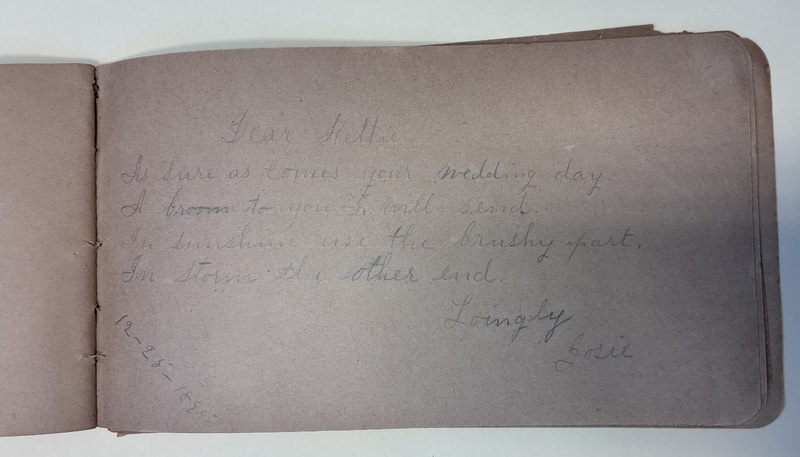 Dear Nettie
As sure as comes your wedding day.
A broom to you I will send.
In sunshine use the brushy part.
In storm the other end.
Loingly
Josie
12-25-